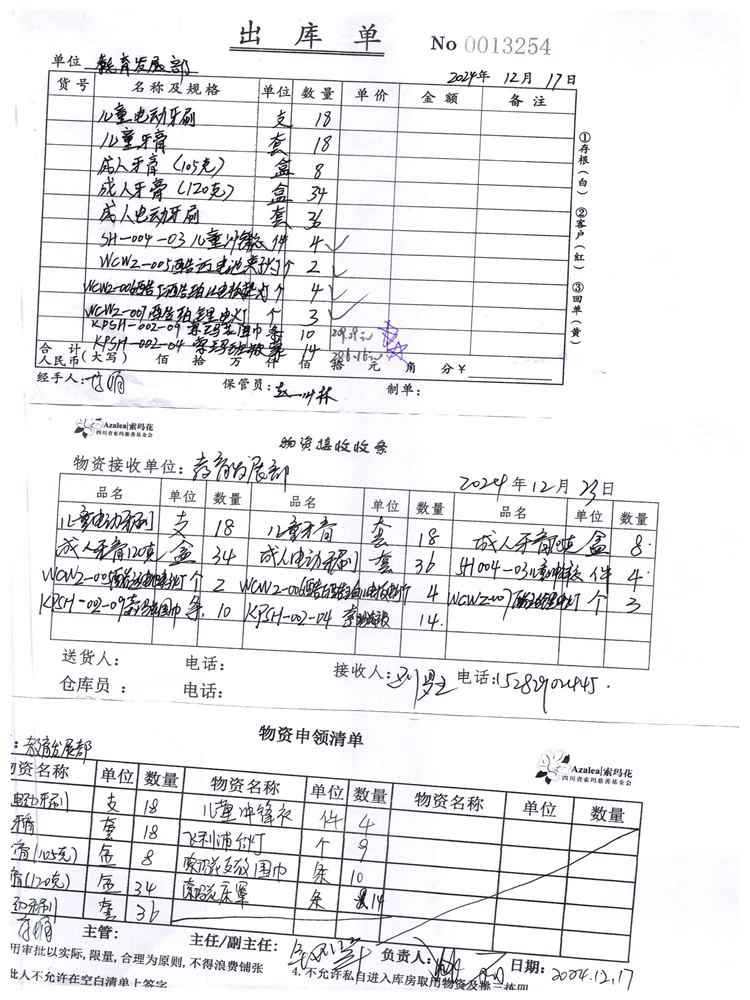 出 库 单
No 0013254
单位 教育发展部
2024年 12月 17日
货号 名称及规格 单位 数量 单价 金额 备注
儿童电动牙刷 支 18
儿童牙膏 套 18
成人牙膏(105克) 盒 8
成人牙膏(120克) 盒 34
成人电动牙刷 套 36
SH-004-03 儿童冲锋衣 件 4
WCW2-005酷 电池 灯 个 2
WCW2-006酷 灯 个 4
WCW2-007酷 灯 个 3
KPSH-002-09 索玛花围巾 条 10
KPSH-002-04 索玛花 条 14
合计
人民币(大写) 佰 拾 万 仟 佰 拾 元 角 分 ¥
经手人: 保管员: 制单:
①存根(白) ②客户(红) ③回单(黄)
Azalea|索玛花
四川省索玛慈善基金会
物资接收收条
物资接收单位: 教育发展部 2024年12月23日
品名 单位 数量 品名 单位 数量 品名 单位 数量
儿童电动牙刷 支 18 儿童牙膏 套 18 成人牙膏 盒 8
成人牙膏120 盒 34 成人电动牙刷 套 36 SH004-03儿童冲锋衣 件 4
WCW2-005酷 灯 个 2 WCW2-006酷 灯 个 4 WCW2-007 灯 个 3
KPSH-02-09 围巾 条 10 KPSH-02-04 14
送货人: 电话: 接收人: 电话:15282902445
仓库员: 电话:
物资申领清单
: 教育发展部
Azalea|索玛花
四川省索玛慈善基金会
资名称 单位 数量 物资名称 单位 数量 物资名称 单位 数量
电动牙刷 支 18 儿童冲锋衣 件 4
牙膏 套 18 飞利浦台灯 个 9
膏(105克) 盒 8 索玛花 围巾 条 10
膏(120克) 盒 34 索玛花床罩 条 14
动牙刷 套 36
主管: 主任/副主任: 负责人: 日期: 2024.12.17
用审批以实际,限量,合理为原则,不得浪费铺张 4.不允许私自进入库房取用物资及
批人不允许在空白清单上签字